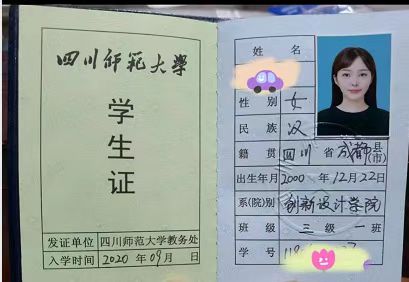 四川师范大学
学生证
发证单位 四川师范大学教务处
入学时间 2020 年 09 月 日
姓名
性别 女
民族 汉
籍贯 四川 省 成都 县(市)
出生年月 2000 年 12 月 22 日
系(院)别 创新设计学院
班级 三级一班
学号